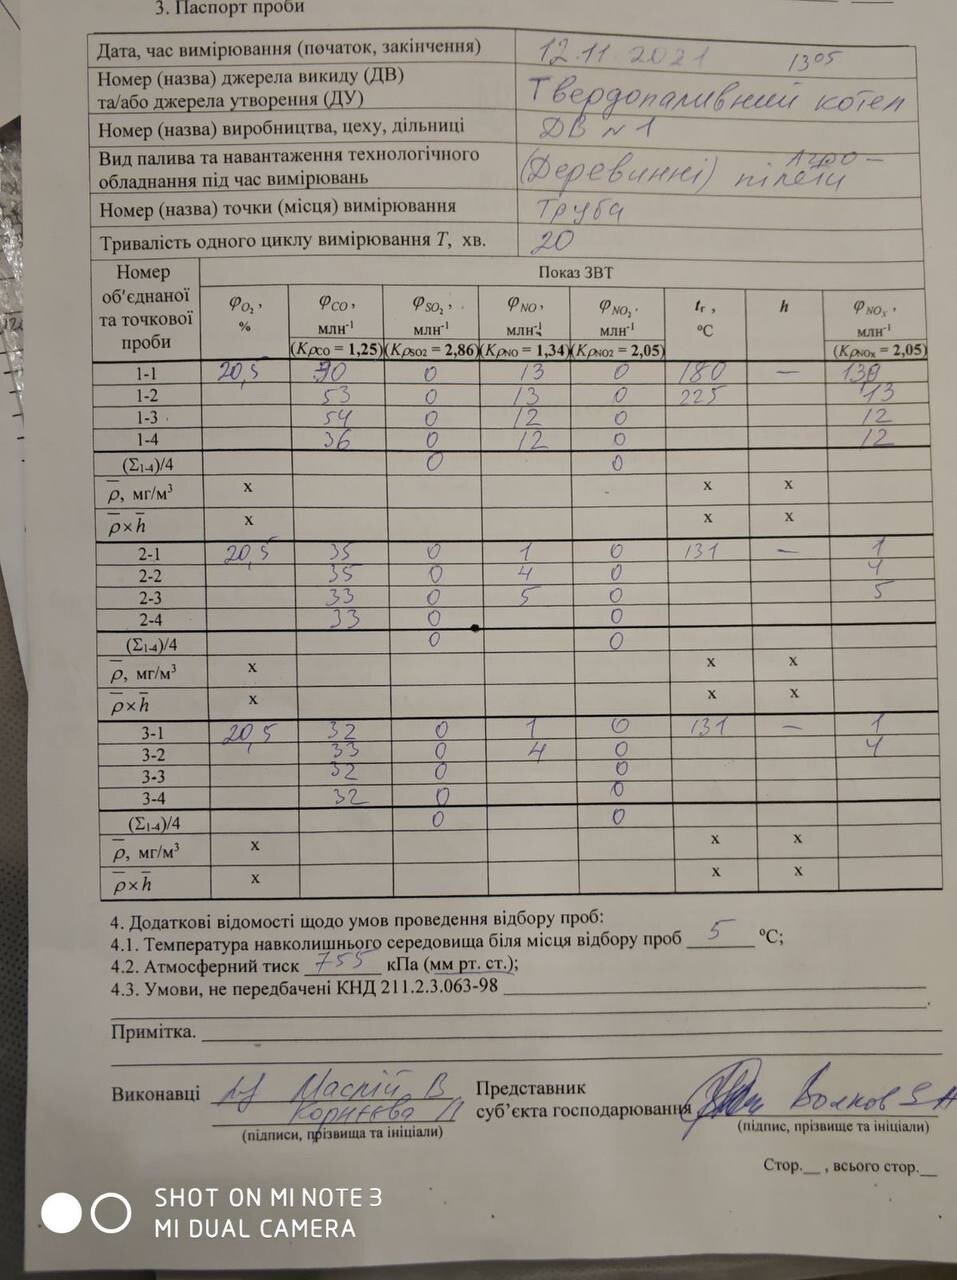 3. Паспорт проби
Дата, час вимірювання (початок, закінчення) 12.11.2021 13⁰⁵
Номер (назва) джерела викиду (ДВ)
та/або джерела утворення (ДУ) Твердопаливний котел
Номер (назва) виробництва, цеху, дільниці ДВ №1
Вид палива та навантаження технологічного
обладнання під час вимірювань (Деревинні) Агро-
пілети
Номер (назва) точки (місця) вимірювання Труба
Тривалість одного циклу вимірювання T, хв. 20
Номер
об'єднаної
та точкової
проби
Показ ЗВТ
φO₂, % φCO, млн⁻¹ φSO₂, млн⁻¹ φNO, млн⁻¹ φNO₂, млн⁻¹ tг, ºC h φNOₓ, млн⁻¹
(KρCO = 1,25) (KρSO2 = 2,86) (KρNO = 1,34) (KρNO2 = 2,05) (KρNOx = 2,05)
1-1 20,5 0 13 0 180 —
1-2 53 0 13 0 225 13
1-3 54 0 12 0 12
1-4 36 0 12 0 12
(Σ₁₋₄)/4 0 0
ρ, мг/м³ x x x
ρ×h x x x
2-1 20,5 35 0 1 0 131 — 1
2-2 35 0 4 0 4
2-3 33 0 5 0 5
2-4 33 0 0
(Σ₁₋₄)/4 0 0
ρ, мг/м³ x x x
ρ×h x x x
3-1 20,5 32 0 1 0 131 — 1
3-2 33 0 4 0 4
3-3 32 0 0
3-4 32 0 0
(Σ₁₋₄)/4 0 0
ρ, мг/м³ x x x
ρ×h x x x
4. Додаткові відомості щодо умов проведення відбору проб:
4.1. Температура навколишнього середовища біля місця відбору проб 5 ºC;
4.2. Атмосферний тиск 755 кПа (мм рт. ст.);
4.3. Умови, не передбачені КНД 211.2.3.063-98
Примітка.
Виконавці
(підписи, прізвища та ініціали)
Представник
суб'єкта господарювання Волков
(підпис, прізвище та ініціали)
Стор.__ , всього стор.__
SHOT ON MI NOTE 3
MI DUAL CAMERA